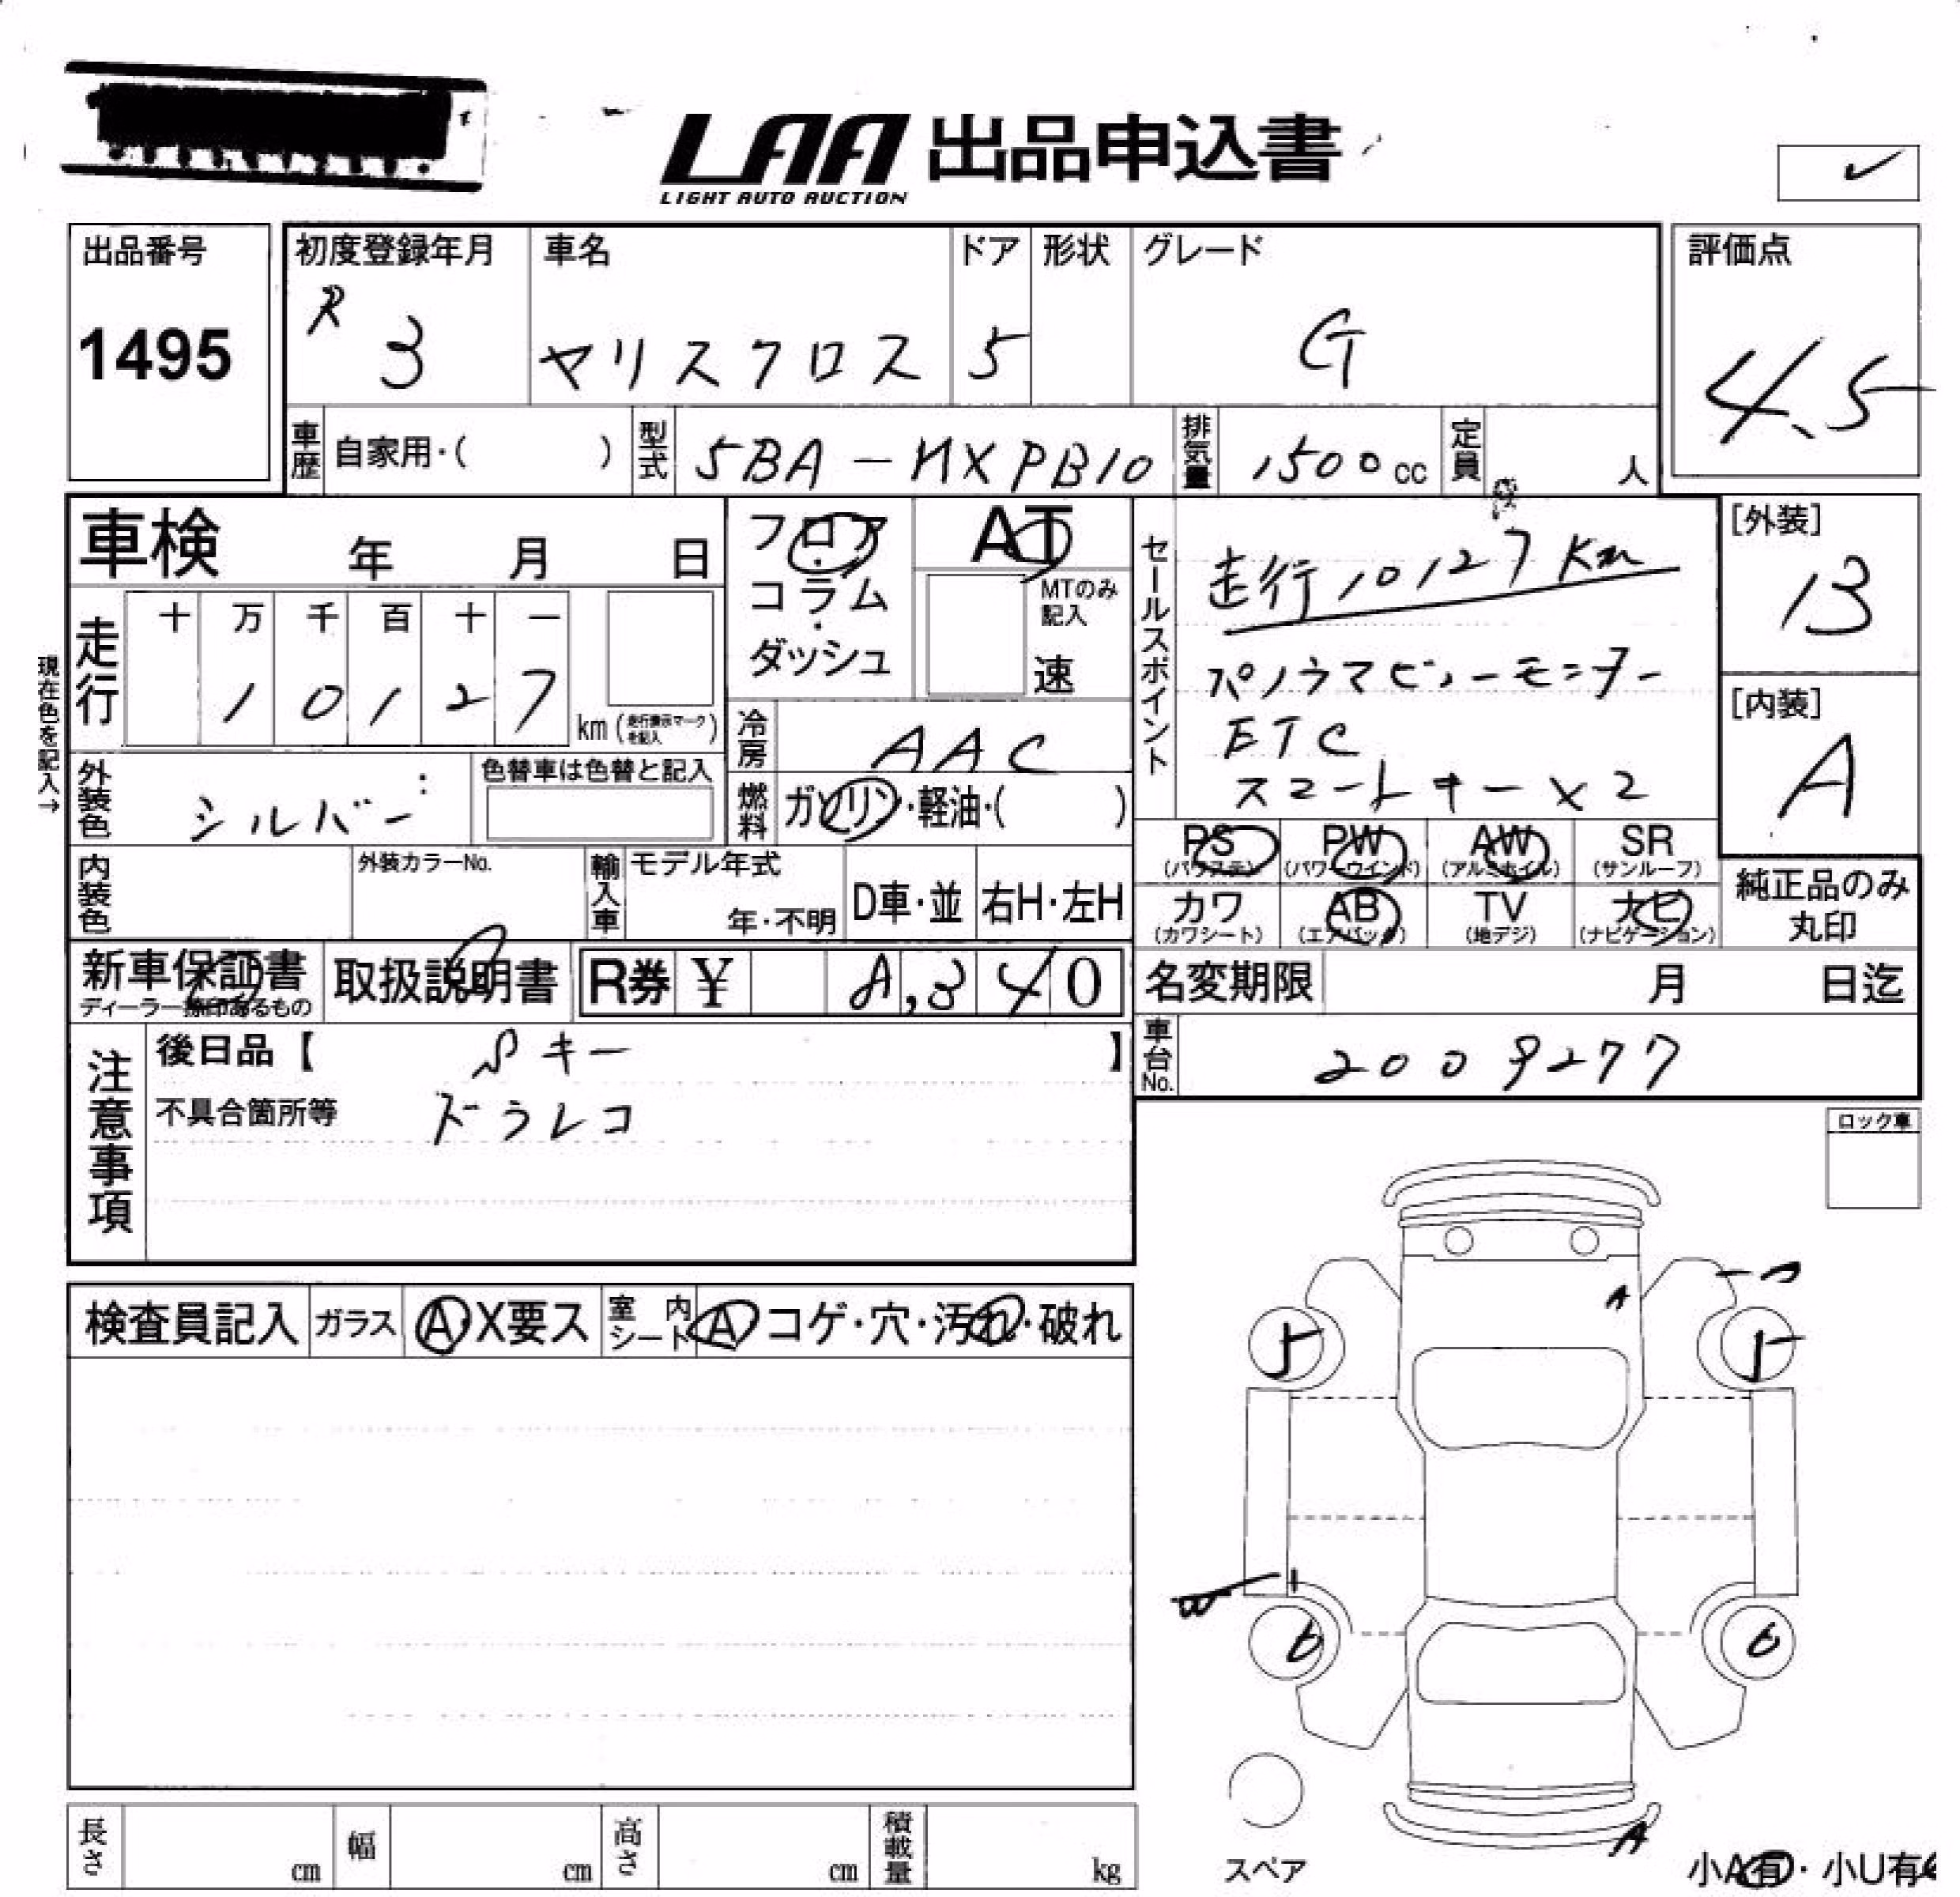 LAA 出品申込書
LIGHT AUTO AUCTION
出品番号
1495
初度登録年月
R 3
車名
ヤリスクロス
ドア
5
形状
グレード
G
評価点
4.5
車歴 自家用・( )
型式 5BA-MXPB10
排気量 1500cc
定員 人
車検 年 月 日
フロア・コラム・ダッシュ
AT
MTのみ記入
速
セールスポイント
走行10127Km
パノラマビューモニター
ETC
スマートキー×2
[外装]
B
[内装]
A
現在色を記入→
走行
十 万 千 百 十 一
1 0 1 2 7
km(走行表示マークを記入)
冷房 AAC
外装色 シルバー
色替車は色替と記入
燃料 ガソリン・軽油・( )
内装色
外装カラーNo.
輸入車
モデル年式
年・不明
D車・並
右H・左H
PS (パワステ)
PW (パワーウインド)
AW (アルミホイル)
SR (サンルーフ)
カワ (カワシート)
AB (エアバック)
TV (地デジ)
ナビ (ナビゲーション)
純正品のみ丸印
新車保証書
ディーラー捺印あるもの
取扱説明書
R券 ¥ 8,340
名変期限 月 日迄
車台No. 2009277
注意事項
後日品【 Sキー 】
不具合箇所等 ドラレコ
ロック車
検査員記入
ガラス A・X要ス
室内シート A コゲ・穴・汚れ・破れ
A
5
5
6
6
A
スペア
小A有・小U有
長さ cm
幅 cm
高さ cm
積載量 kg